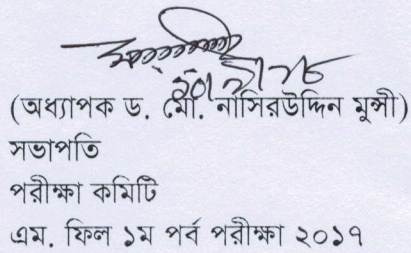 (অধ্যাপক ড. মো. নাসিরউদ্দিন মুন্সী)
সভাপতি
পরীক্ষা কমিটি
এম. ফিল ১ম পর্ব পরীক্ষা ২০১৭